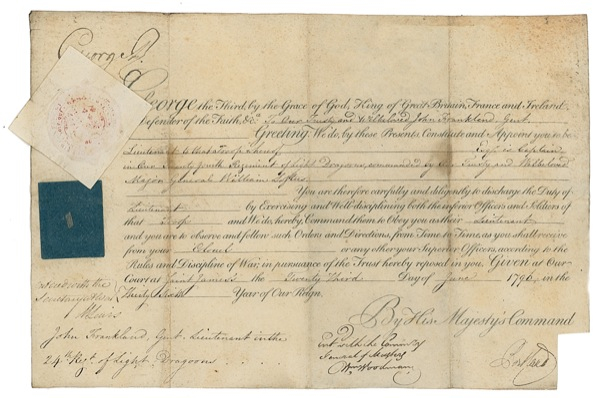 George R.
George the Third, by the Grace of God, King of Great Britain, France and Ireland,
Defender of the Faith, &c. To Our Trusty and Welbeloved John Frankland, Gent.
Greeting: We do, by these Presents, Constitute and Appoint you to be
Lieutenant to that Troop whereof Esqr. is Captain
in Our Twenty fourth Regiment of Light Dragoons, commanded by Our Trusty and Welbeloved
Major General William Loftus.
You are therefore carefully and diligently to discharge the Duty of
Lieutenant by Exercising and Well-disciplining both the inferior Officers and Soldiers of
that Troop and We do, hereby, Command them to Obey you as their Lieutenant
and you are to observe and follow such Orders and Directions, from Time to Time, as you shall receive
from your Colonel or any other your Superior Officers, according to the
Rules and Discipline of War, in pursuance of the Trust hereby reposed in you. Given at Our
Court at Saint James's the Twenty Third Day of June 1796, in the
Thirty Sixth Year of Our Reign.
Entered with the
Secretary at War
By His Majesty's Command
Portland
John Frankland, Gent. Lieutenant in the
24th Regt. of Light Dragoons
Entd. with the Commissy
General of Musters
Wm Woodman